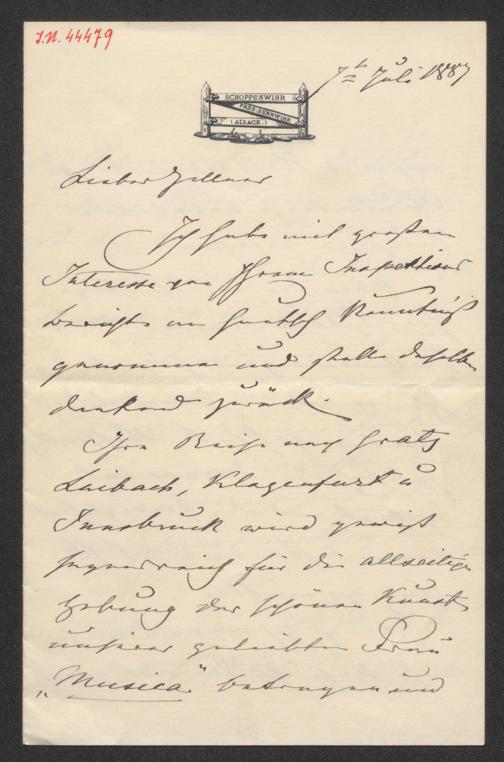 I.N. 44479
7t Juli 1887
SCHOPPENWIHR
PRÈS BENNWIHR
(ALSACE.)
Lieber Zellner
Ich habe mit großem
Interesse von Ihrem Inspektions
berichte an Kenntniß
genommen und stelle denselben
dankend zurück.
Ihre Reise nach Gratz
Laibach, Klagenfurt u
Innsbruck wird gewiß
segensreich für die allseitige
Hebung der schönen Kunst
unserer geliebten Frau
„Musica" beitragen und